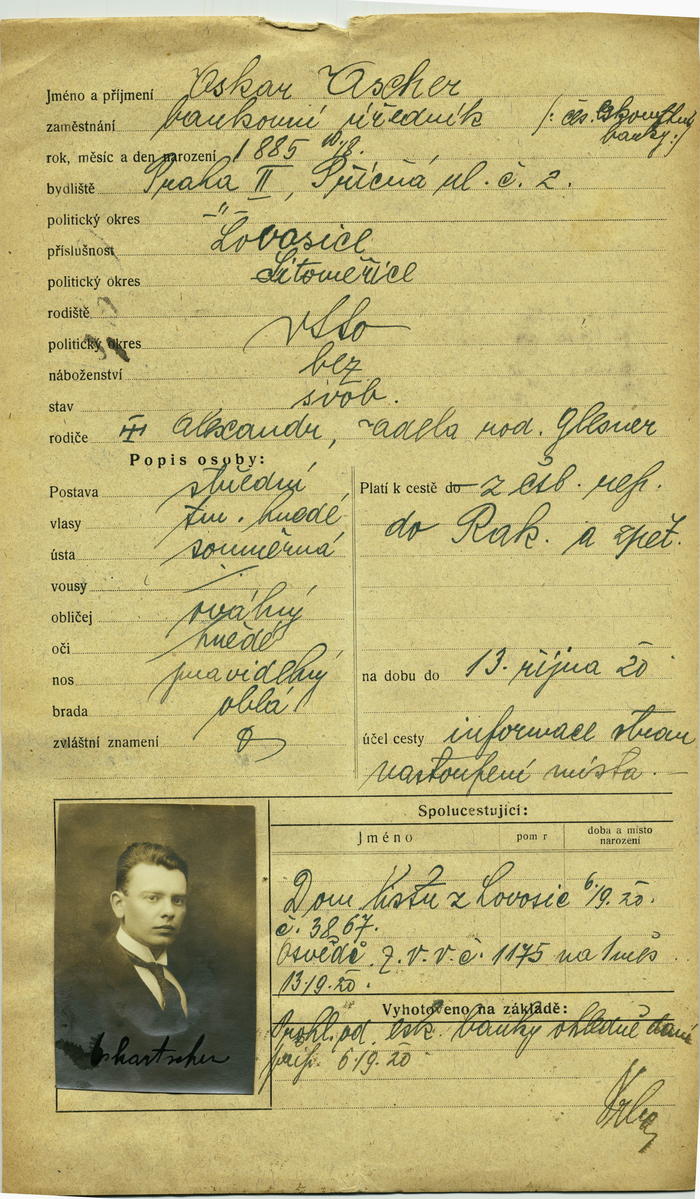 Jméno a příjmení Oskar Ascher
zaměstnání bankovní úředník /: čs. eskomptní banky :/
rok, měsíc a den narození 1885 10/8.
bydliště Praha II, Příčná ul. č. 2.
politický okres -"-
příslušnost Lovosice
politický okres Litoměřice
rodiště
politický okres
náboženství bez
stav svob.
rodiče Alexandr, Adela rod. Glesner
Popis osoby:
Postava střední
vlasy tm. hnědé
ústa souměrná
vousy ./.
obličej oválný
oči hnědé
nos pravidelný
brada oblá
zvláštní znamení
Platí k cestě do z čsl. rep.
do Rak. a zpět.
na dobu do 13. října 20
účel cesty informace stran
nastoupení místa.
Spolucestující:
Jméno pom r doba a místo narození
Dom. listu z Lovosic 6/9. 20.
č. 3867.
Osvědč. z. v. v. č. 1175 na 1 měs
13/9. 20.
Vyhotoveno na základě:
Prohl. od esk. banky ohledně daní
6/9. 20
Oskar Ascher